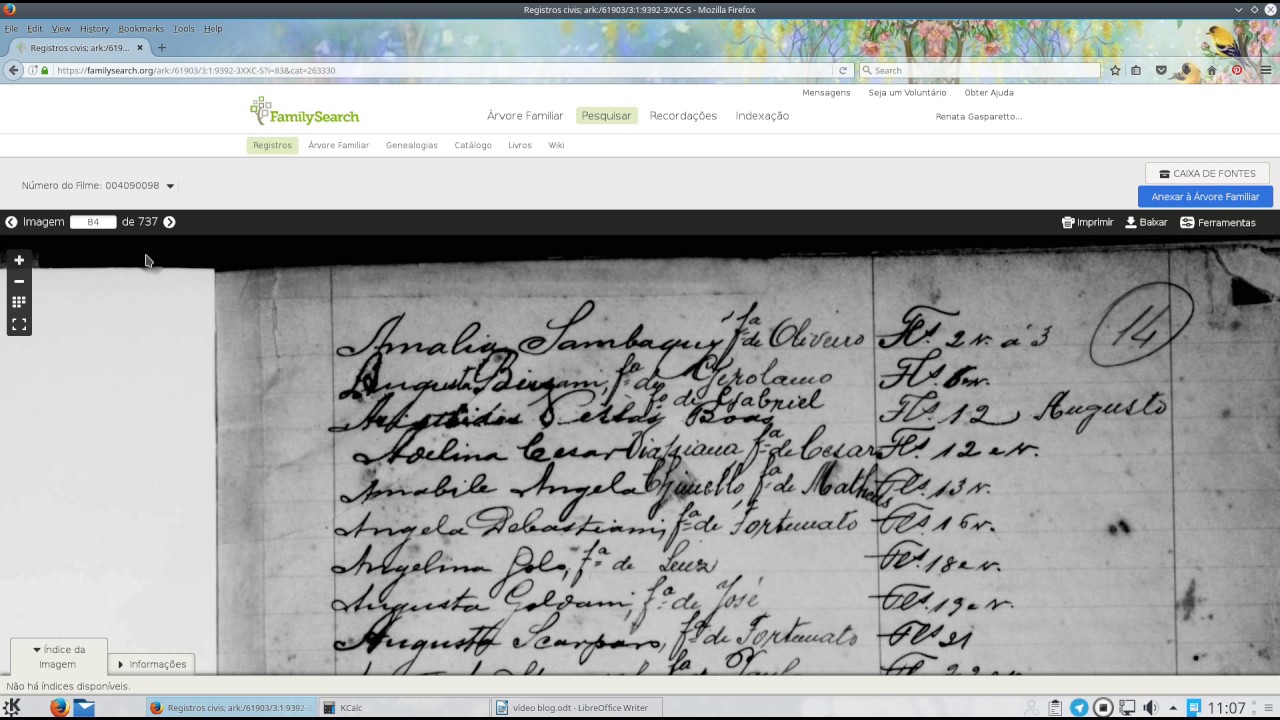 Registros civis; ark:/61903/3:1:9392-3XXC-S - Mozilla Firefox
File Edit View History Bookmarks Tools Help
Registros civis; ark:/619...
https://familysearch.org/ark:/61903/3:1:9392-3XXC-S?i=83&cat=263330
Search
Mensagens Seja um Voluntário Obter Ajuda
FamilySearch
Árvore Familiar Pesquisar Recordações Indexação
Renata Gasparetto...
Registros Árvore Familiar Genealogias Catálogo Livros Wiki
CAIXA DE FONTES
Número do Filme: 004090098
Anexar à Árvore Familiar
Imagem 84 de 737
Imprimir Baixar Ferramentas
14
Amalia Sambaquy fª de Oliveiro Fls. 2 v. á 3
Augusta fª de Gerolamo Fls.
fº de Gabriel
Boas Fls. 12 Augusto
Adelina Cesar Viapiana fª de Cesar Fls. 12 e v.
Amabile Angela fª de Matheus Fls. 13 v.
Angela Debastiani, fª de Fortunato Fls. 16 v.
Angelina Golo, fª de Luiz Fls. 18 e v.
Augusta Goldani, fª de José Fls. 19 e v.
Augusto Scarparo, fº de Fortunato Fls 21
Índice da
Imagem
Informações
Não há índices disponíveis.
Registros civis; ark:/61903/3:1:9392-3 KCalc vídeo blog.odt - LibreOffice Writer 11:07